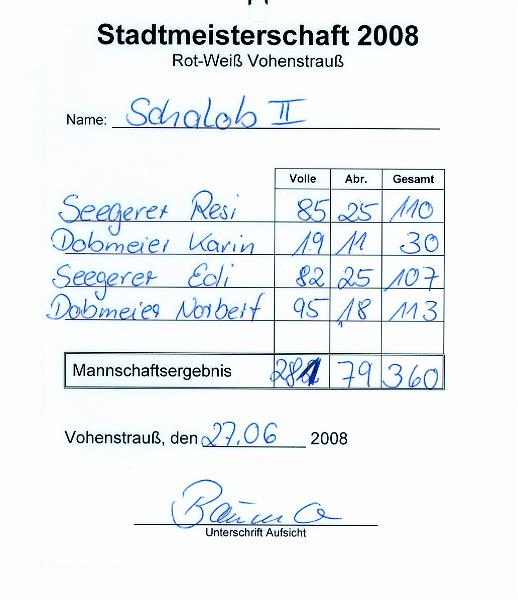 Stadtmeisterschaft 2008
Rot-Weiß Vohenstrauß
Name: Schalob II
Volle Abr. Gesamt
Seegerer Resi 85 25 110
Dobmeier Karin 19 11 30
Seegerer Edi 82 25 107
Dobmeier Norbert 95 18 113
Mannschaftsergebnis 281 79 360
Vohenstrauß, den 27.06 2008
Unterschrift Aufsicht